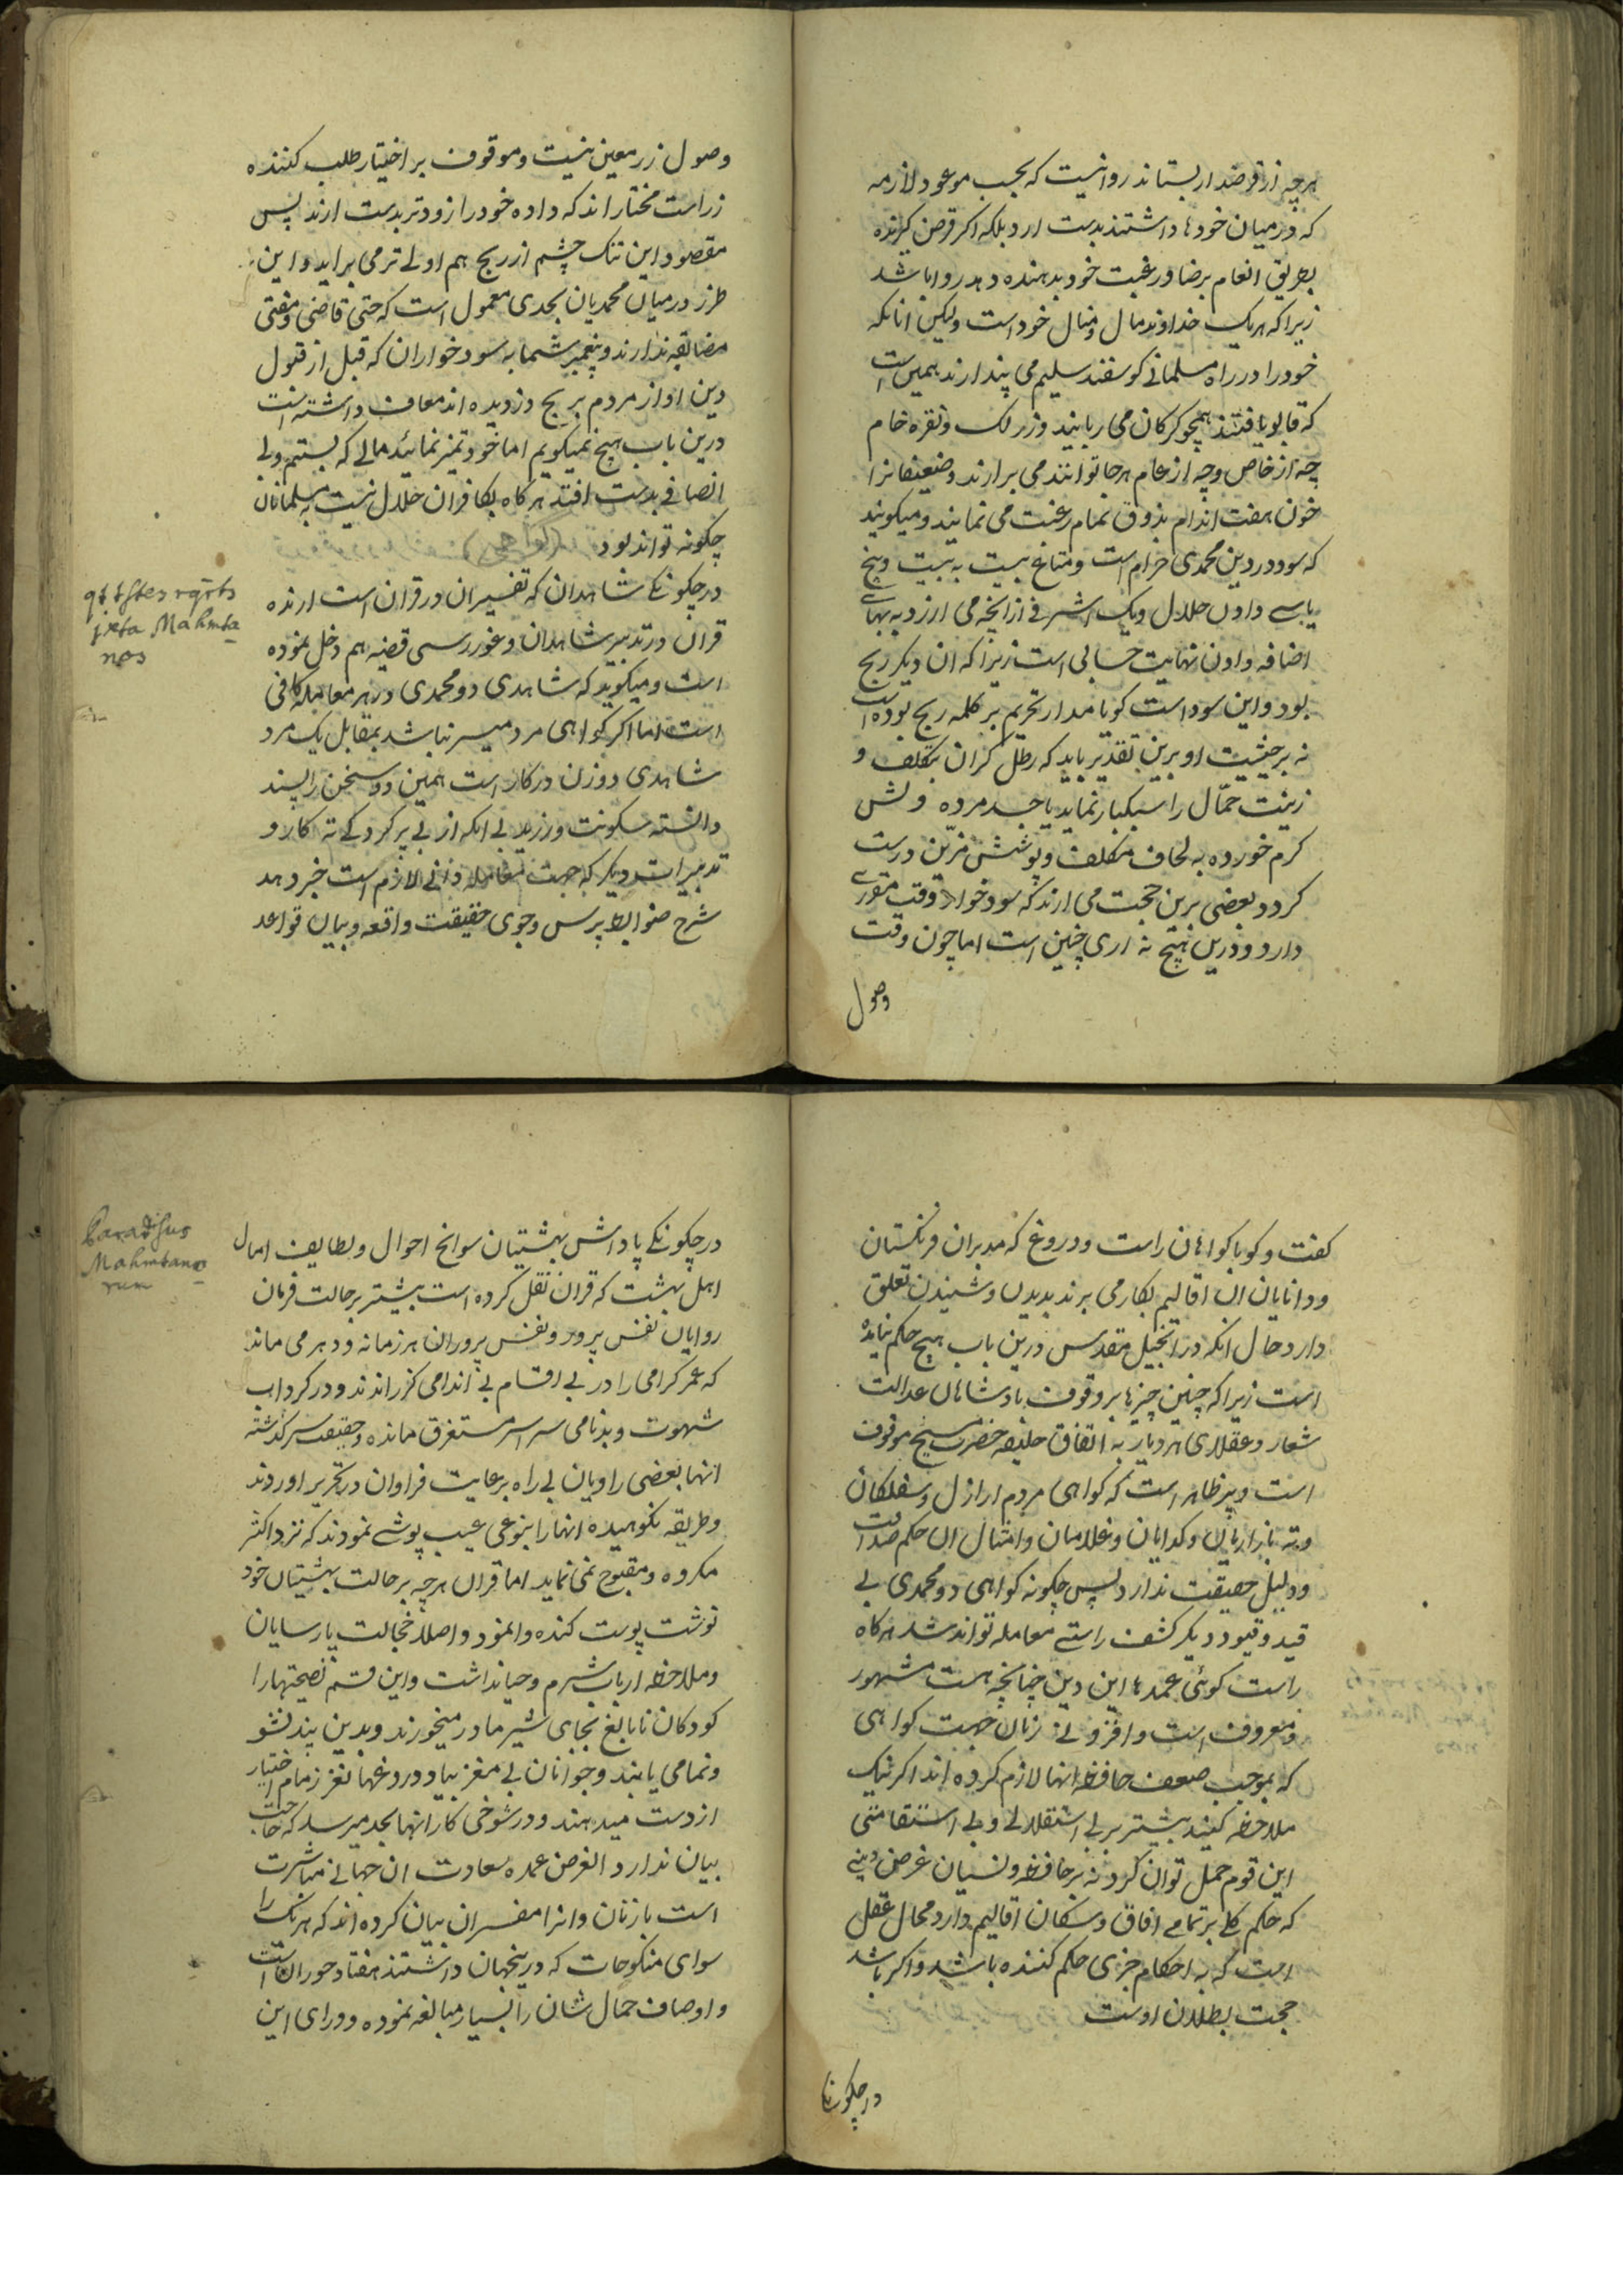 هرچه از قرضدار بستاند روا نیست که بحسب موعود لازمه
که درمیان خودها داشتند بدست ارد بلکه اکر قرض کیرنده
بطریق انعام برضا ورغبت خود بدهنده دهد روا باشد
زیرا که هریک خداوند مال و منال خود است ولیکن انانکه
خود را در راه مسلمانی کوسفند سلیم می پندارند همین است
که قابو یافتند همچو کرکان می ربایند وزر لک ونقره خام
چه از خاص وچه از عام هرجا توانند می برارند وضعیفانرا
خون هفت اندام بذوق تمام رغبت می نمایند ومیکویند
که سود در دین محمدی حرام است ومتاع بیست به بیست وپنج
یا سی دادن حلال ویک اشرفی از انچه می ارزد به بهای
اضافه دادن نهایت حسابی است زیرا که ان دیکر ربح
بود واین سود است کویا مدار تحریم بر کلمه ربح بوده است
نه بر حیثیت او برین تقدیر باید که رطل کران بتکلف و
زینت حمّال را سبکبار نماید یا جسد مرده ولش
کرم خورده به لحاف متکلف وپوشش مزیّن درست
کردد بعضی برین حجت می ارند که سود خوار وقت مقرری
دارد ودرین هیچ نه اری چنین است اما چون وقت
وصول
وصول زر معین نیست وموقوف بر اختیار طلب کننده
زر است مختار اند که داده خود را زودتر بدست ارند پس
مقصود این تنک چشم از ربح هم اولی تر می براید واین
طرز درمیان محمدیان بحدی معمول است که حتی قاضی ومفتی
مضایقه ندارند وپیغمبر شما به سود خواران که قبل از قبول
دین او از مردم بربح دزدیده اند معاف داشته است
درین باب هیچ نمیکویم اما خود تمیز نمائید مالی که بستم وبی
انصافی بدست افتد هرکاه بکافران حلال نیست به مسلمانان
چکونه تواند بود
درچکونکی شاهدان که تفسیر ان در قران است ارنده
قران در تدبیر شاهدان وغور رسی قضیه هم دخل نموده
است ومیکوید که شاهدی دو محمدی در هر معامله کافی
است اما اکر کواهی مرد میسر نباشد بمقابل یک مرد
شاهدی دو زن درکار است همین دو سخن را پسند
دانسته سکونت ورزید بی انکه از بی پر کردکی ته کار و
تدبیرات دیکر که جهت معامله دانی لازم است خبر دهد
شرح ضوابط پرس وجوی حقیقت واقعه وبیان قواعد
qt tstes rqrts
jxta Mahmta
nos
کفت وکو با کواهان راست ودروغ که مدبران فرنکستان
ودانایان ان اقالیم بکار می برند بدیدن وشنیدن تعلق
دارد حال انکه در انجیل مقدس درین باب هیچ حکم نیامده
است زیرا که چنین چیزها بر وقوف بادشاهان عدالت
شعار وعقلای هر دیار به اتفاق خلیفه حضرت مسیح موقوف
است ونیز ظاهر است که کواهی مردم اراذل وسفلکان
وته بازاریان وکدایان وغلامان وامثال ان حکم صداقت
ودلیل حقیقت ندارد پس چکونه کواهی دو محمدی بی
قید وقیود دیکر کشف راستی معامله تواند شد هرکاه
راست کوئی عمدهاء این دین چنانچه هست مشهور
ومعروف است وافزونی زنان جهت کواهی
که بموجب ضعف حافظه انها لازم کرده اند اکر نیک
ملاحظه کنند بیشتر بر بی استقلالی وبی استقامتی
این قوم حمل توان کرد نه بر حافظه ونسیان غرض دینی
که حکم کلی بر تمامی افاق وسکان اقالیم دارد محال عقل
است که به احکام جزی حکم کننده باشد واکر باشد
حجت بطلان اوست
درچکونکی
درچکونکی پاداش بهشتیان سوانح احوال ولطایف امال
اهل بهشت که قران نقل کرده است بیشتر بر حالت فرمان
روایان نفس پرور ونفس پروران هر زمانه ودهر می ماند
که عمر کرامی را در بی اقسام بی اندامی کزراندند ودر کرداب
شهوت وبدنامی سراسر مستغرق مانده وحقیقت سرکذشته
انها بعضی راویان بی راه برعایت فراوان در تحریر اوردند
وطریقه نکوهیده انها را بنوعی عیب پوشی نمودند که نزد اکثر
مکروه ومقبوح نمی نماید اما قران هرچه بر حالت بهشتیان خود
نوشت پوست کنده وانمود واصلا خجالت پارسایان
وملاحظه ارباب شرم وحیا نداشت واین قسم نصیحتها را
کودکان نابالغ بجای شیر مادر میخورند وبدین پند نشو
ونما می یابند وجوانان بی مغز بیاد دروغهای نغز زمام اختیار
از دست میدهند ودر شوخی کار انها بجد میرسد که حاجت
بیان ندارد الغرض عمده سعادت ان جهانی مباشرت
است با زنان وانرا مفسران بیان کرده اند که هر یک را
سوای منکوحات که درینجهان داشتند هفتاد حوران است
واوصاف جمال شان را بسیار مبالغه نموده وورای این
Paradisus
Mahmtano
rum